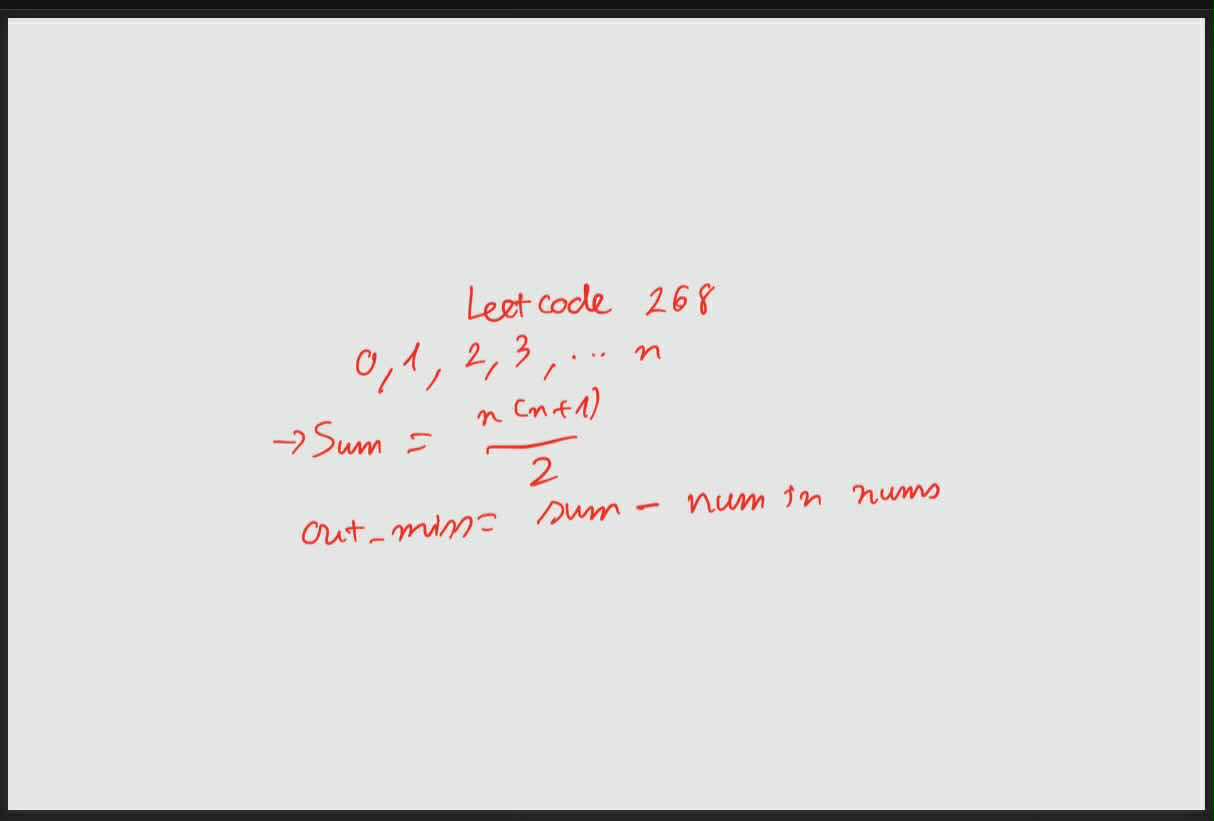 Leetcode 268
0, 1, 2, 3, ... n
→ Sum = n(n+1) / 2
out_miss = sum - num in nums